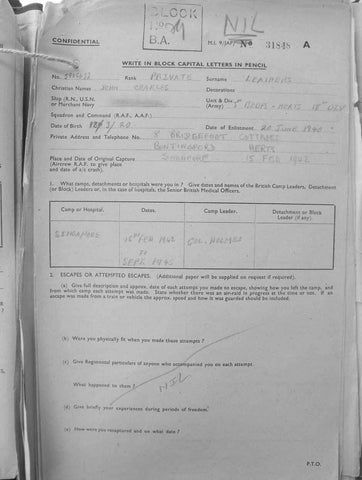 BLOCK
B.A.
NIL
CONFIDENTIAL
M.I. 9/JAP/No 31848 A
WRITE IN BLOCK CAPITAL LETTERS IN PENCIL
No. Rank PRIVATE Surname
Christian Names JOHN CHARLES Decorations
Ship (R.N., U.S.N. or Merchant Navy Unit & Div. (Army) BEDS + HERTS 18 DIV
Squadron and Command (R.A.F., A.A.F.)
Date of Birth 3/20 Date of Enlistment 20 JUNE 1940
Private Address and Telephone No. 8 BRIDGEFOOT COTTAGES
BUNTINGFORD HERTS
Place and Date of Original Capture SINGAPORE 15 FEB 1942
(Aircrew R.A.F. to give place
and date of a/c crash).
1. What camps, detachments or hospitals were you in? Give dates and names of the British Camp Leaders, Detachment
(or Block) Leaders or, in the case of hospitals, the Senior British Medical Officers.
Camp or Hospital. Dates. Camp Leader. Detachment or Block Leader (if any).
SINGAPORE 15 FEB 1942 COL. HOLMES
TO
SEPT 1945
2. ESCAPES OR ATTEMPTED ESCAPES. (Additional paper will be supplied on request if required).
(a) Give full description and approx. date of each attempt you made to escape, showing how you left the camp, and
from which camp each attempt was made. State whether there was an air-raid in progress at the time or not. If an
escape was made from a train or vehicle the approx. speed and how it was guarded should be included.
(b) Were you physically fit when you made these attempts?
(c) Give Regimental particulars of anyone who accompanied you on each attempt.
What happened to them?
NIL
(d) Give briefly your experiences during periods of freedom.
(e) How were you recaptured and on what date?
P.T.O.